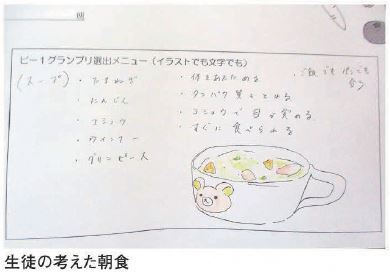 ビー1グランプリ選出メニュー(イラストでも文字でも)
(スープ)
・たまねぎ
・にんじん
・コショウ
・ウインナー
・グリンピース
・体をあたためる
・タンパク質をとれる
・コショウで目が覚める
・すぐに食べられる
・ご飯でもパンでも
合う
生徒の考えた朝食